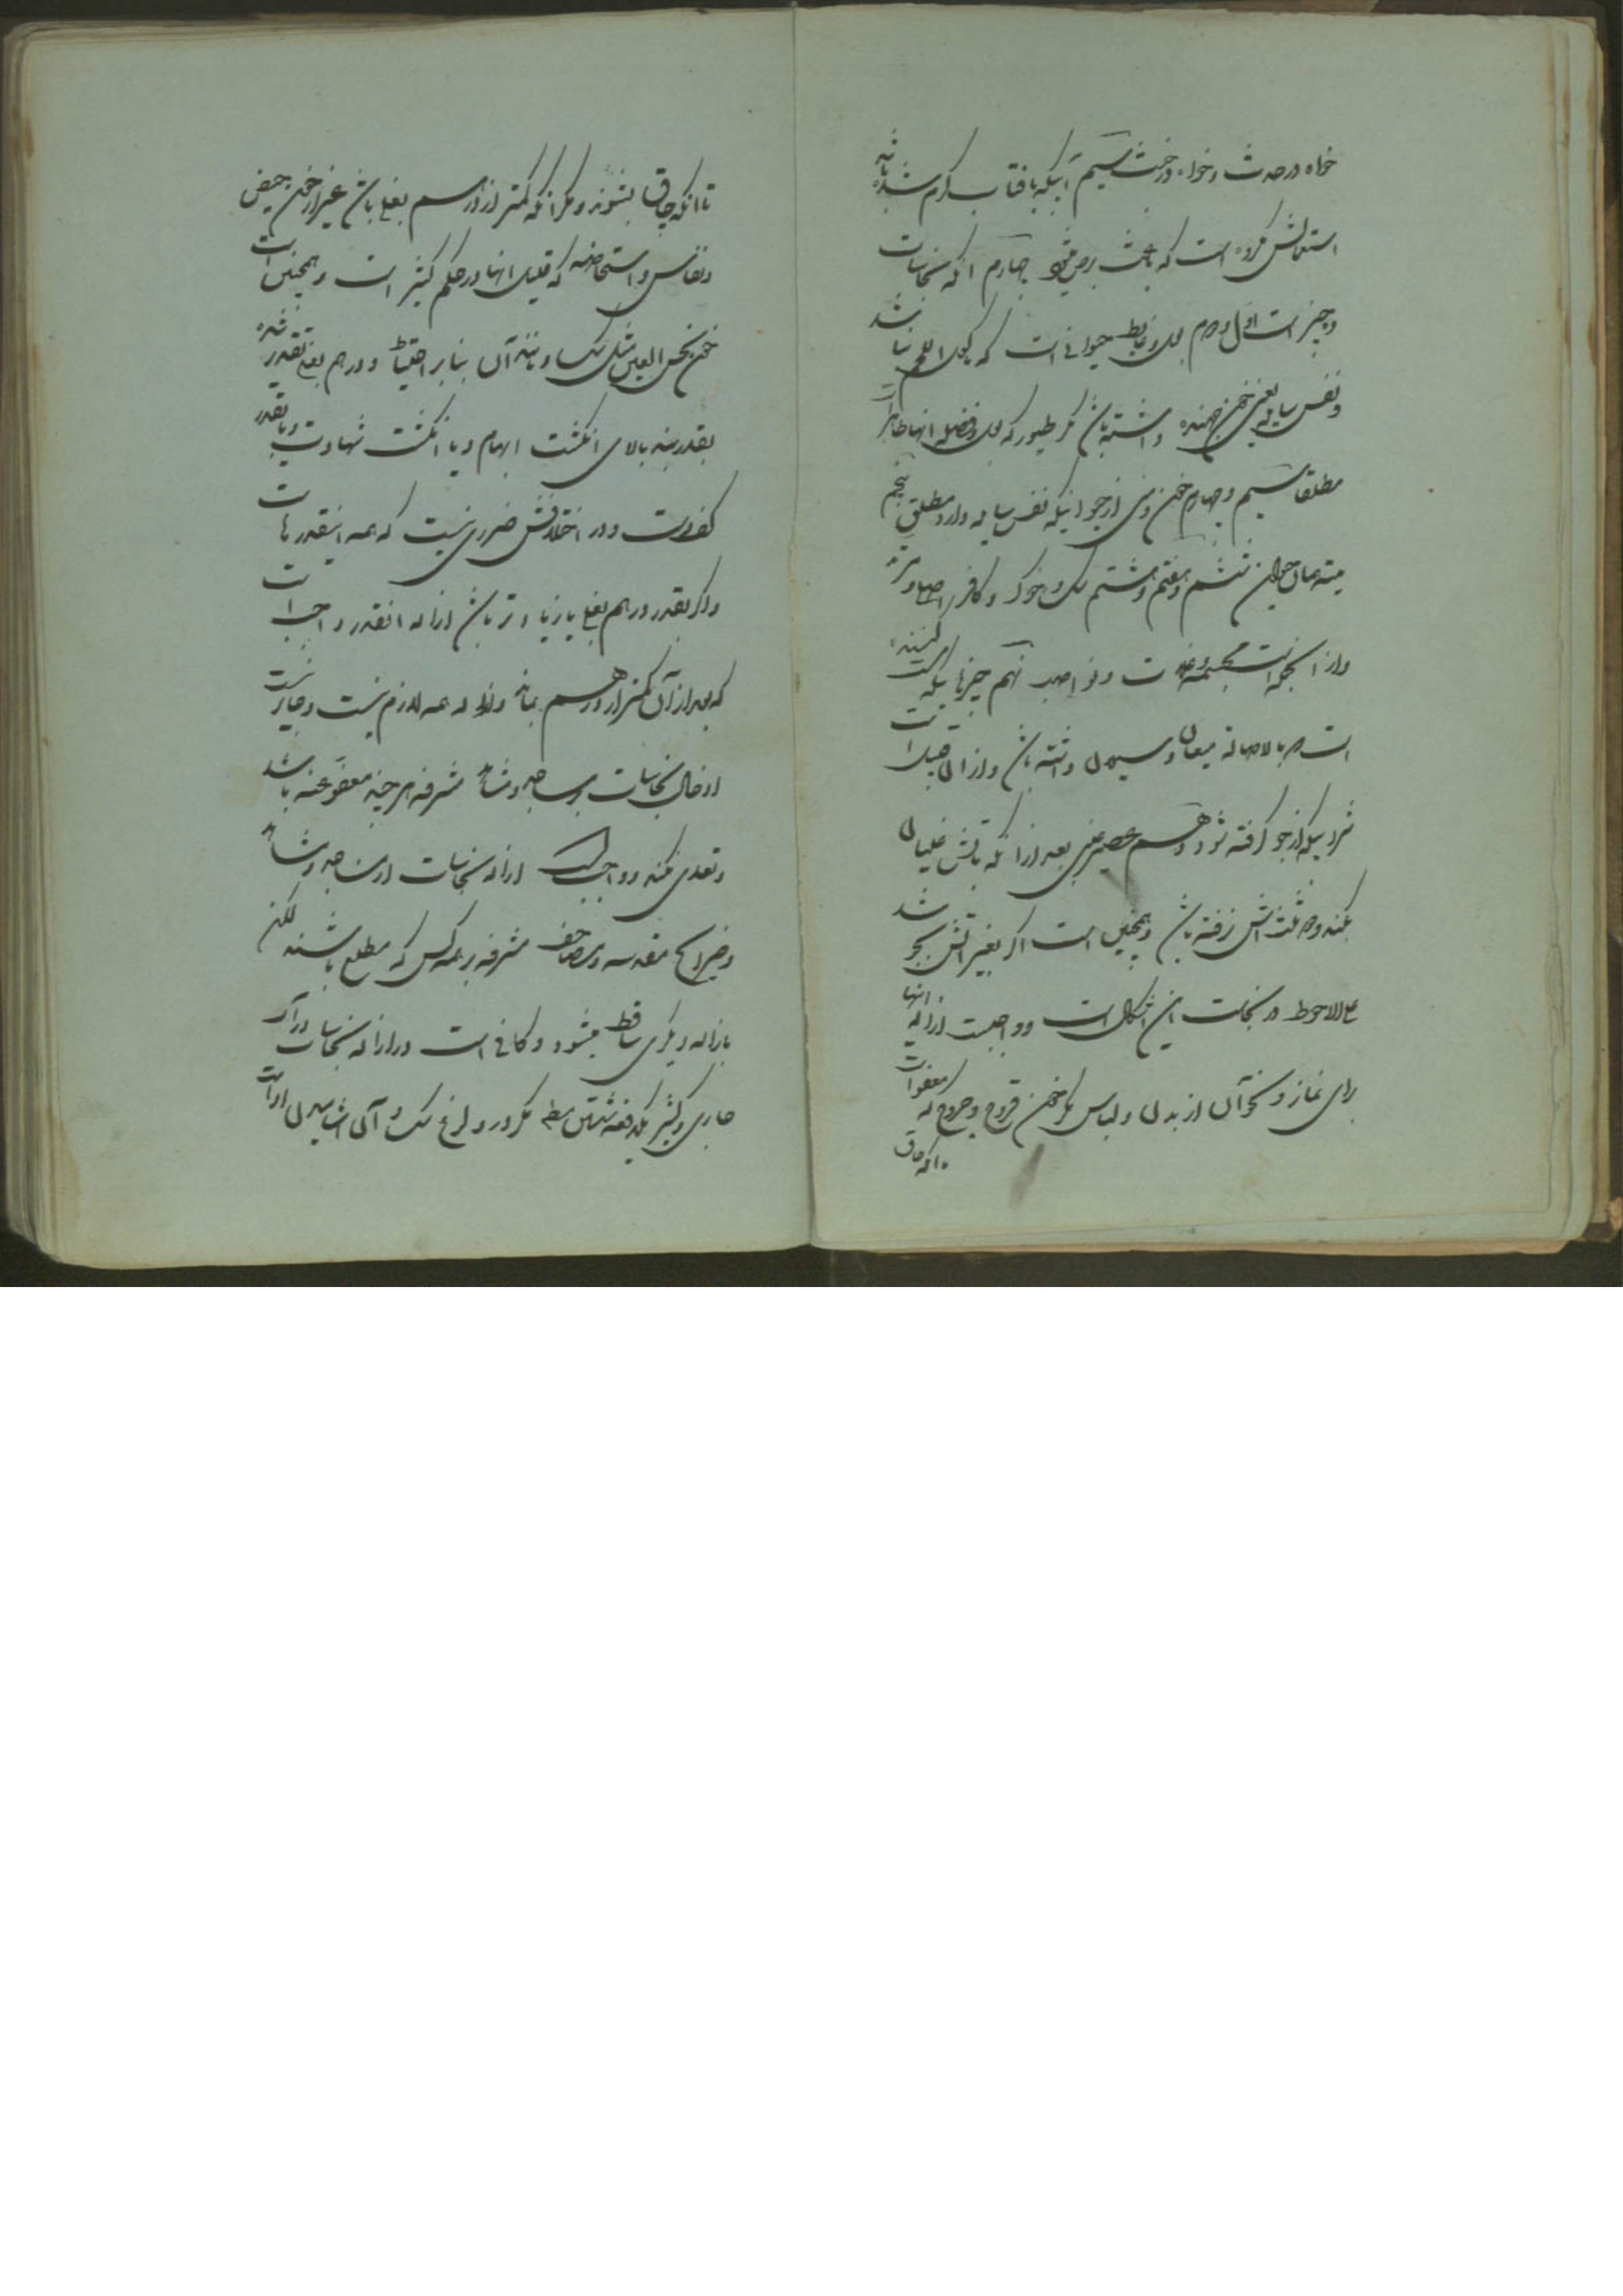 خواه در حدث و خواه در خبث سیم آبیکه بافتاب گرم شده باشد
استعمالش مکروه است که باعث برص میشود چهارم انکه نجاسات
ده چیز است اول و دوم بول و غایط حیوانی است که ماکول اللحم نباشد
و نفس سایله یعنی خون جهنده داشته باشد مگر طیور که بول و فضله انها طاهر است
مطلقا سیم و چهارم خون و منی از حیوانیکه نفس سایله دارد مطلق پنجم
میته همان حیوان ششم و هفتم و هشتم سگ و خوک و کافر اصلی و مرتد
و از انجمله است مجسمه و غلات و نواصب نهم چیزهائیکه مست کننده
است و بالاصاله میعان و سیلان داشته باشد و از ان قبیل است
شرابیکه از جو گرفته شود دهم عصیر عنبی بعد از انکه باتش غلیان
بکند و دو ثلث انش نرفته باشد و همچنین است اگر بغیر اتش بجوشد
علی الاحوط در نجاست این اشکال است و واجبست ازاله انها
برای نماز و نحو آن از بدن و لباس مگر خون قروح و جروح که معفو است
تا انکه چاق
تا انکه چاق بشوند و مگر انکه کمتر از درهم بغلی باشد غیر از خون حیض
و نفاس و استحاضه که قلیل انها در حکم کثیر است و همچنین است
خون نجس العین مثل سگ و مانند آن بنابر احتیاط و درهم بغلی تقدیر شده
بقدر بند بالای انگشت ابهام و یا انگشت شهادت و یا بقدر
کف دست و در اختلافش ضرری نیست که همه اینقدرهاست
و اگر بقدر درهم بغلی یا زیادتر باشد ازاله انقدر واجب است
که بعد از آن کمتر از درهم بماند و ازاله همه لازم نیست و جایز نیست
ادخال نجاسات بر مساجد و مشاهد مشرفه هر چند معفو عنه باشد
و تعدی نکند و واجب است ازاله نجاسات از مساجد و مشاهد
و ضرایح مقدسه و مصاحف مشرفه بر همه کس که مطلع باشند لکن
بازاله دیگری ساقط میشود و کافی است در ازاله نجاسات در آب
جاری و کثیر یکدفعه شستن مگر در ولوغ سگ و آن اشامیدن او است